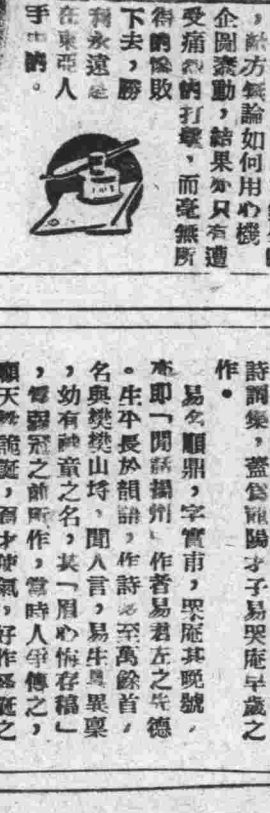 ，敵方無論如何用心機
企圖蠢動，結果亦只有遭
受痛烈的打擊，而毫無所
得的慘敗
下去，勝
利永遠是
在東亞人
手中的。
詩謂集，蓋爲龍陽才子易哭庵早歲之
作。
易名順鼎，字實甫，哭庵其晚號，
亦即「閒話揚州」作者易君左之先德
。生平長於韻語，作詩必至萬餘首，
名與樊樊山埒，聞人言，易生具異稟
，幼有神童之名，其「眉心悔存稿」
，爲弱冠之前所作，當時人爭傳之，
順天
詭誕，
才使氣，好作
誕之